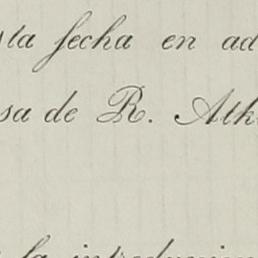 sta fecha en ad
sa de R. Atk
la introduccion